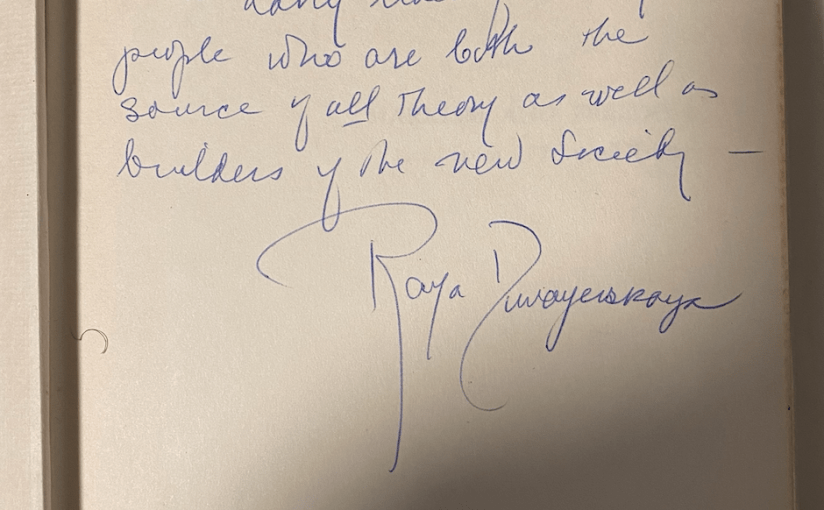 people who are both the
source of all Theory as well as
builders of the new Society —
Raya Dunayevskaya